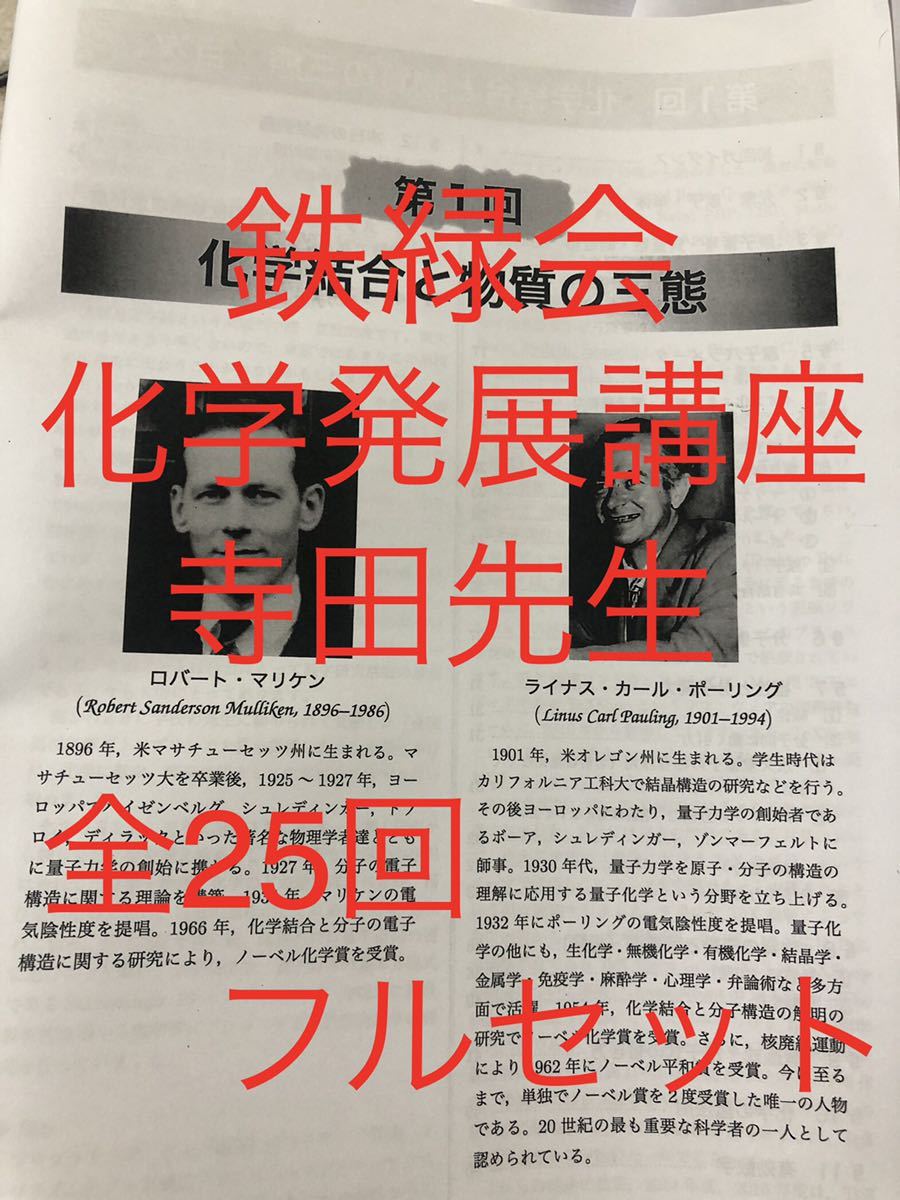 第1回
化学結合と物質の三態
鉄緑会
化学発展講座
寺田先生
全25回
フルセット
ロバート・マリケン
(Robert Sanderson Mulliken, 1896–1986)
1896年,米マサチューセッツ州に生まれる。マ
サチューセッツ大を卒業後,1925～1927年,ヨー
ロッパでハイゼンベルグ,シュレディンガー,ド
ロイ,ディラックといった著名な物理学者達ととも
に量子力学の創始に携わる。1927年,分子の電子
構造に関する理論を構築。193 年,マリケンの電
気陰性度を提唱。1966年,化学結合と分子の電子
構造に関する研究により,ノーベル化学賞を受賞。
ライナス・カール・ポーリング
(Linus Carl Pauling, 1901–1994)
1901年,米オレゴン州に生まれる。学生時代は
カリフォルニア工科大で結晶構造の研究などを行う。
その後ヨーロッパにわたり,量子力学の創始者であ
るボーア,シュレディンガー,ゾンマーフェルトに
師事。1930年代,量子力学を原子・分子の構造の
理解に応用する量子化学という分野を立ち上げる。
1932年にポーリングの電気陰性度を提唱。量子化
学の他にも,生化学・無機化学・有機化学・結晶学・
金属学・免疫学・麻酔学・心理学・弁論術など多方
面で活躍。1954年,化学結合と分子構造の解明の
研究でノーベル化学賞を受賞。さらに,核廃絶運動
により1962年にノーベル平和賞を受賞。今に至る
まで,単独でノーベル賞を2度受賞した唯一の人物
である。20世紀の最も重要な科学者の一人として
認められている。